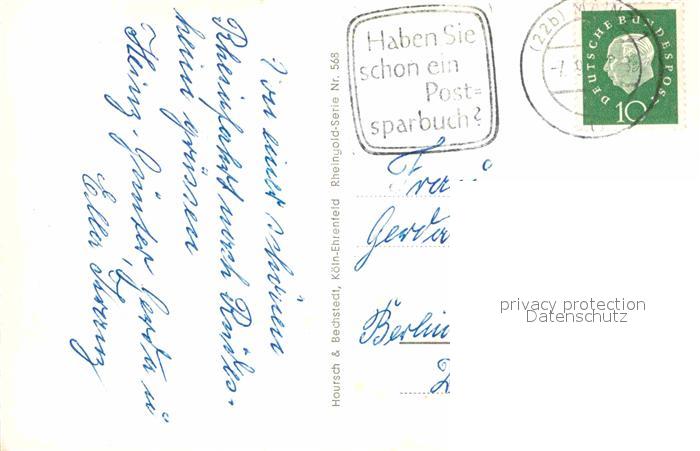 Von einer schönen
Rheinfahrt nach Rüdes-
heim grüssen
Heinz, Günter, Gerda u
Ella
Hoursch & Bechstedt, Köln-Ehrenfeld Rheingold-Serie Nr. 568
Haben Sie
schon ein
Post=
sparbuch?
(22b) MAIN
-7.
DEUTSCHE BUNDESPOST
10
Fra
Gerda
Berlin
2
privacy protection
Datenschutz